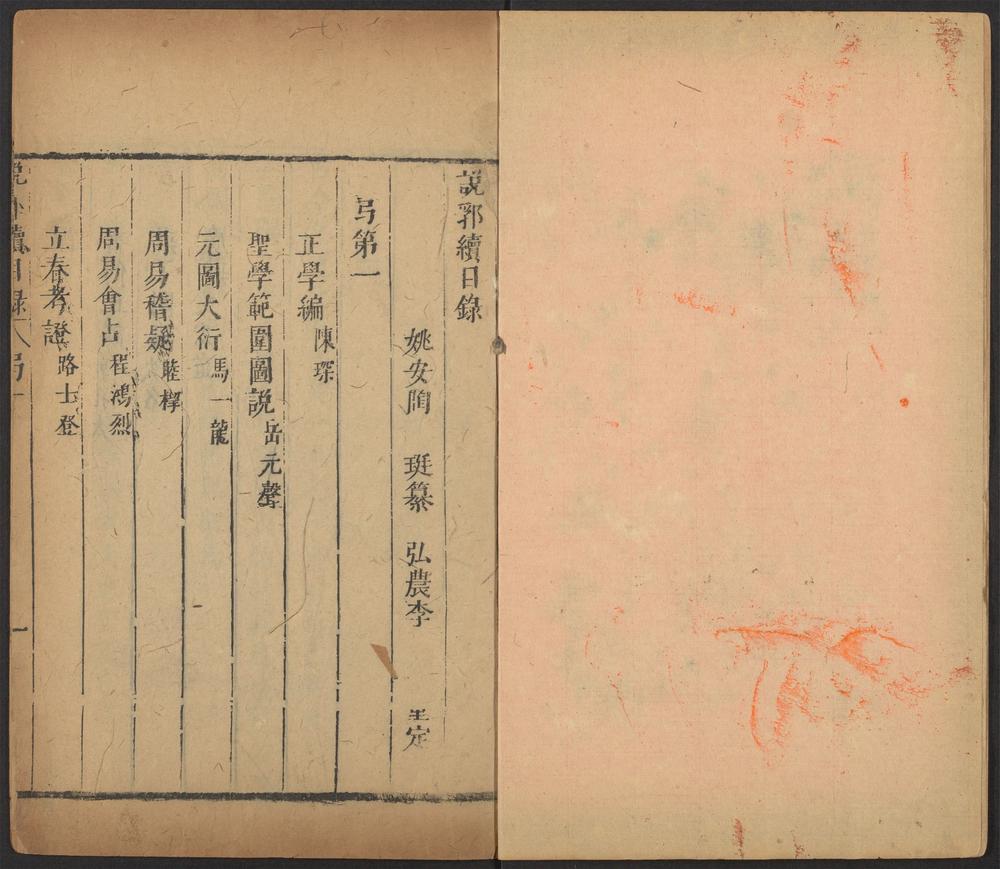 說郛續目錄
姚安陶 珽纂 弘農李 定
弓第一
正學編 陳琛
聖學範圍圖說 岳元聲
元圖大衍 馬一龍
周易稽疑 睦㮮
周易會占 程鴻烈
立春考證 路士登
續目錄 弓一 一